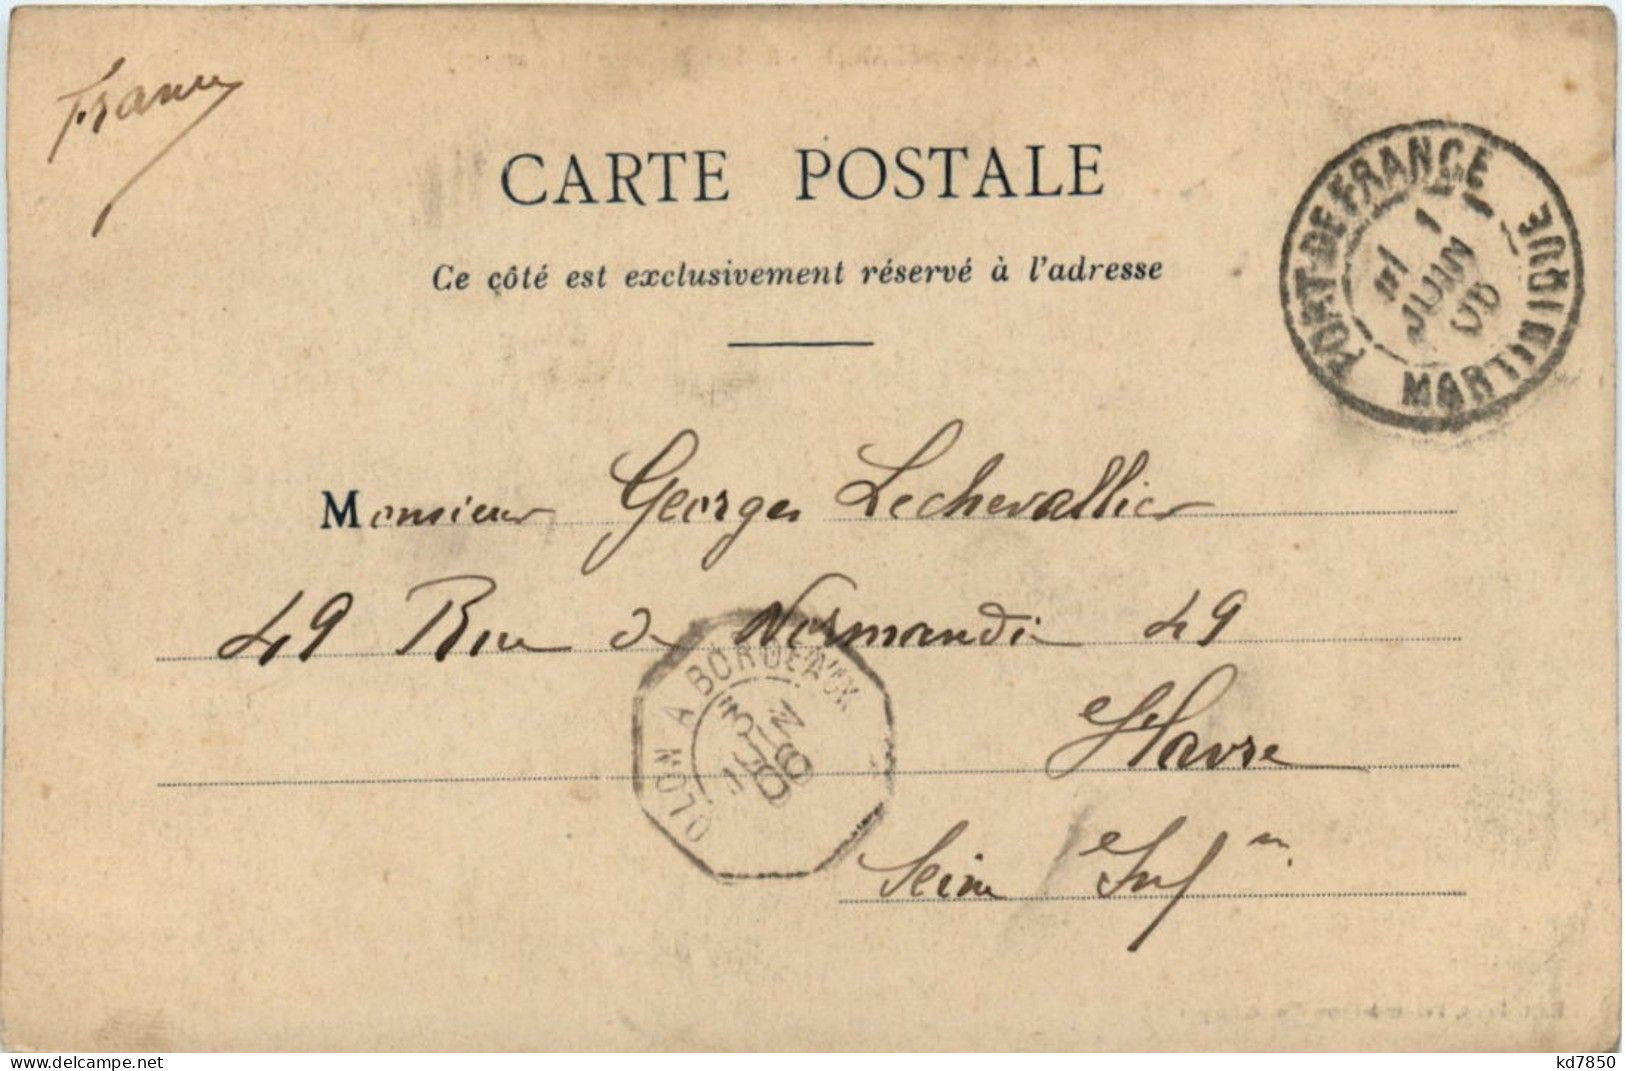 France
CARTE POSTALE
Ce côté est exclusivement réservé à l'adresse
FORT-DE-FRANCE
1
JUIN
06
MARTINIQUE
Monsieur Georges Lechevallier
49 Rue de Normandie 49
COLON A BORDEAUX
JUIN
06
Havre
Seine Infre
kd7850